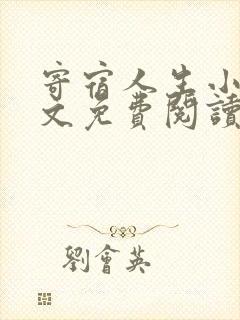 寄宿人生小
文免費閱讀
劉會英